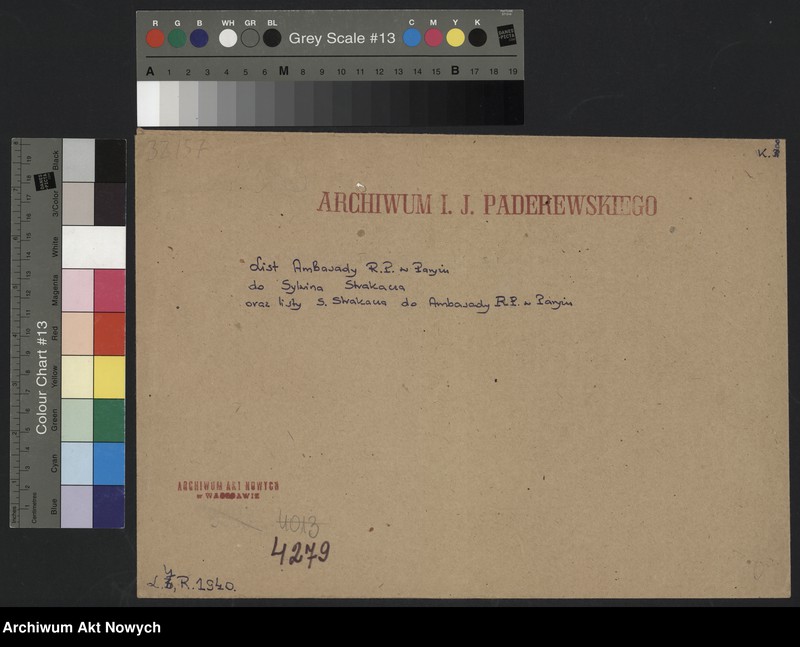 R G B WH GR BL Grey Scale #13 C M Y K
A 1 2 3 4 5 6 M 8 9 10 11 12 13 14 15 B 17 18 19
Colour Chart #13
Blue Cyan Green Yellow Red Magenta White 3/Color Black
Inches
Centimetres
38/57
K.
ARCHIWUM I. J. PADEREWSKIEGO
List Ambasady R.P. w Paryżu
do Sylwina Strakacza
oraz listy S. Strakacza do Ambasady R.P. w Paryżu
ARCHIWUM AKT NOWYCH
w WARSZAWIE
4013
4279
R. 1940.
Archiwum Akt Nowych